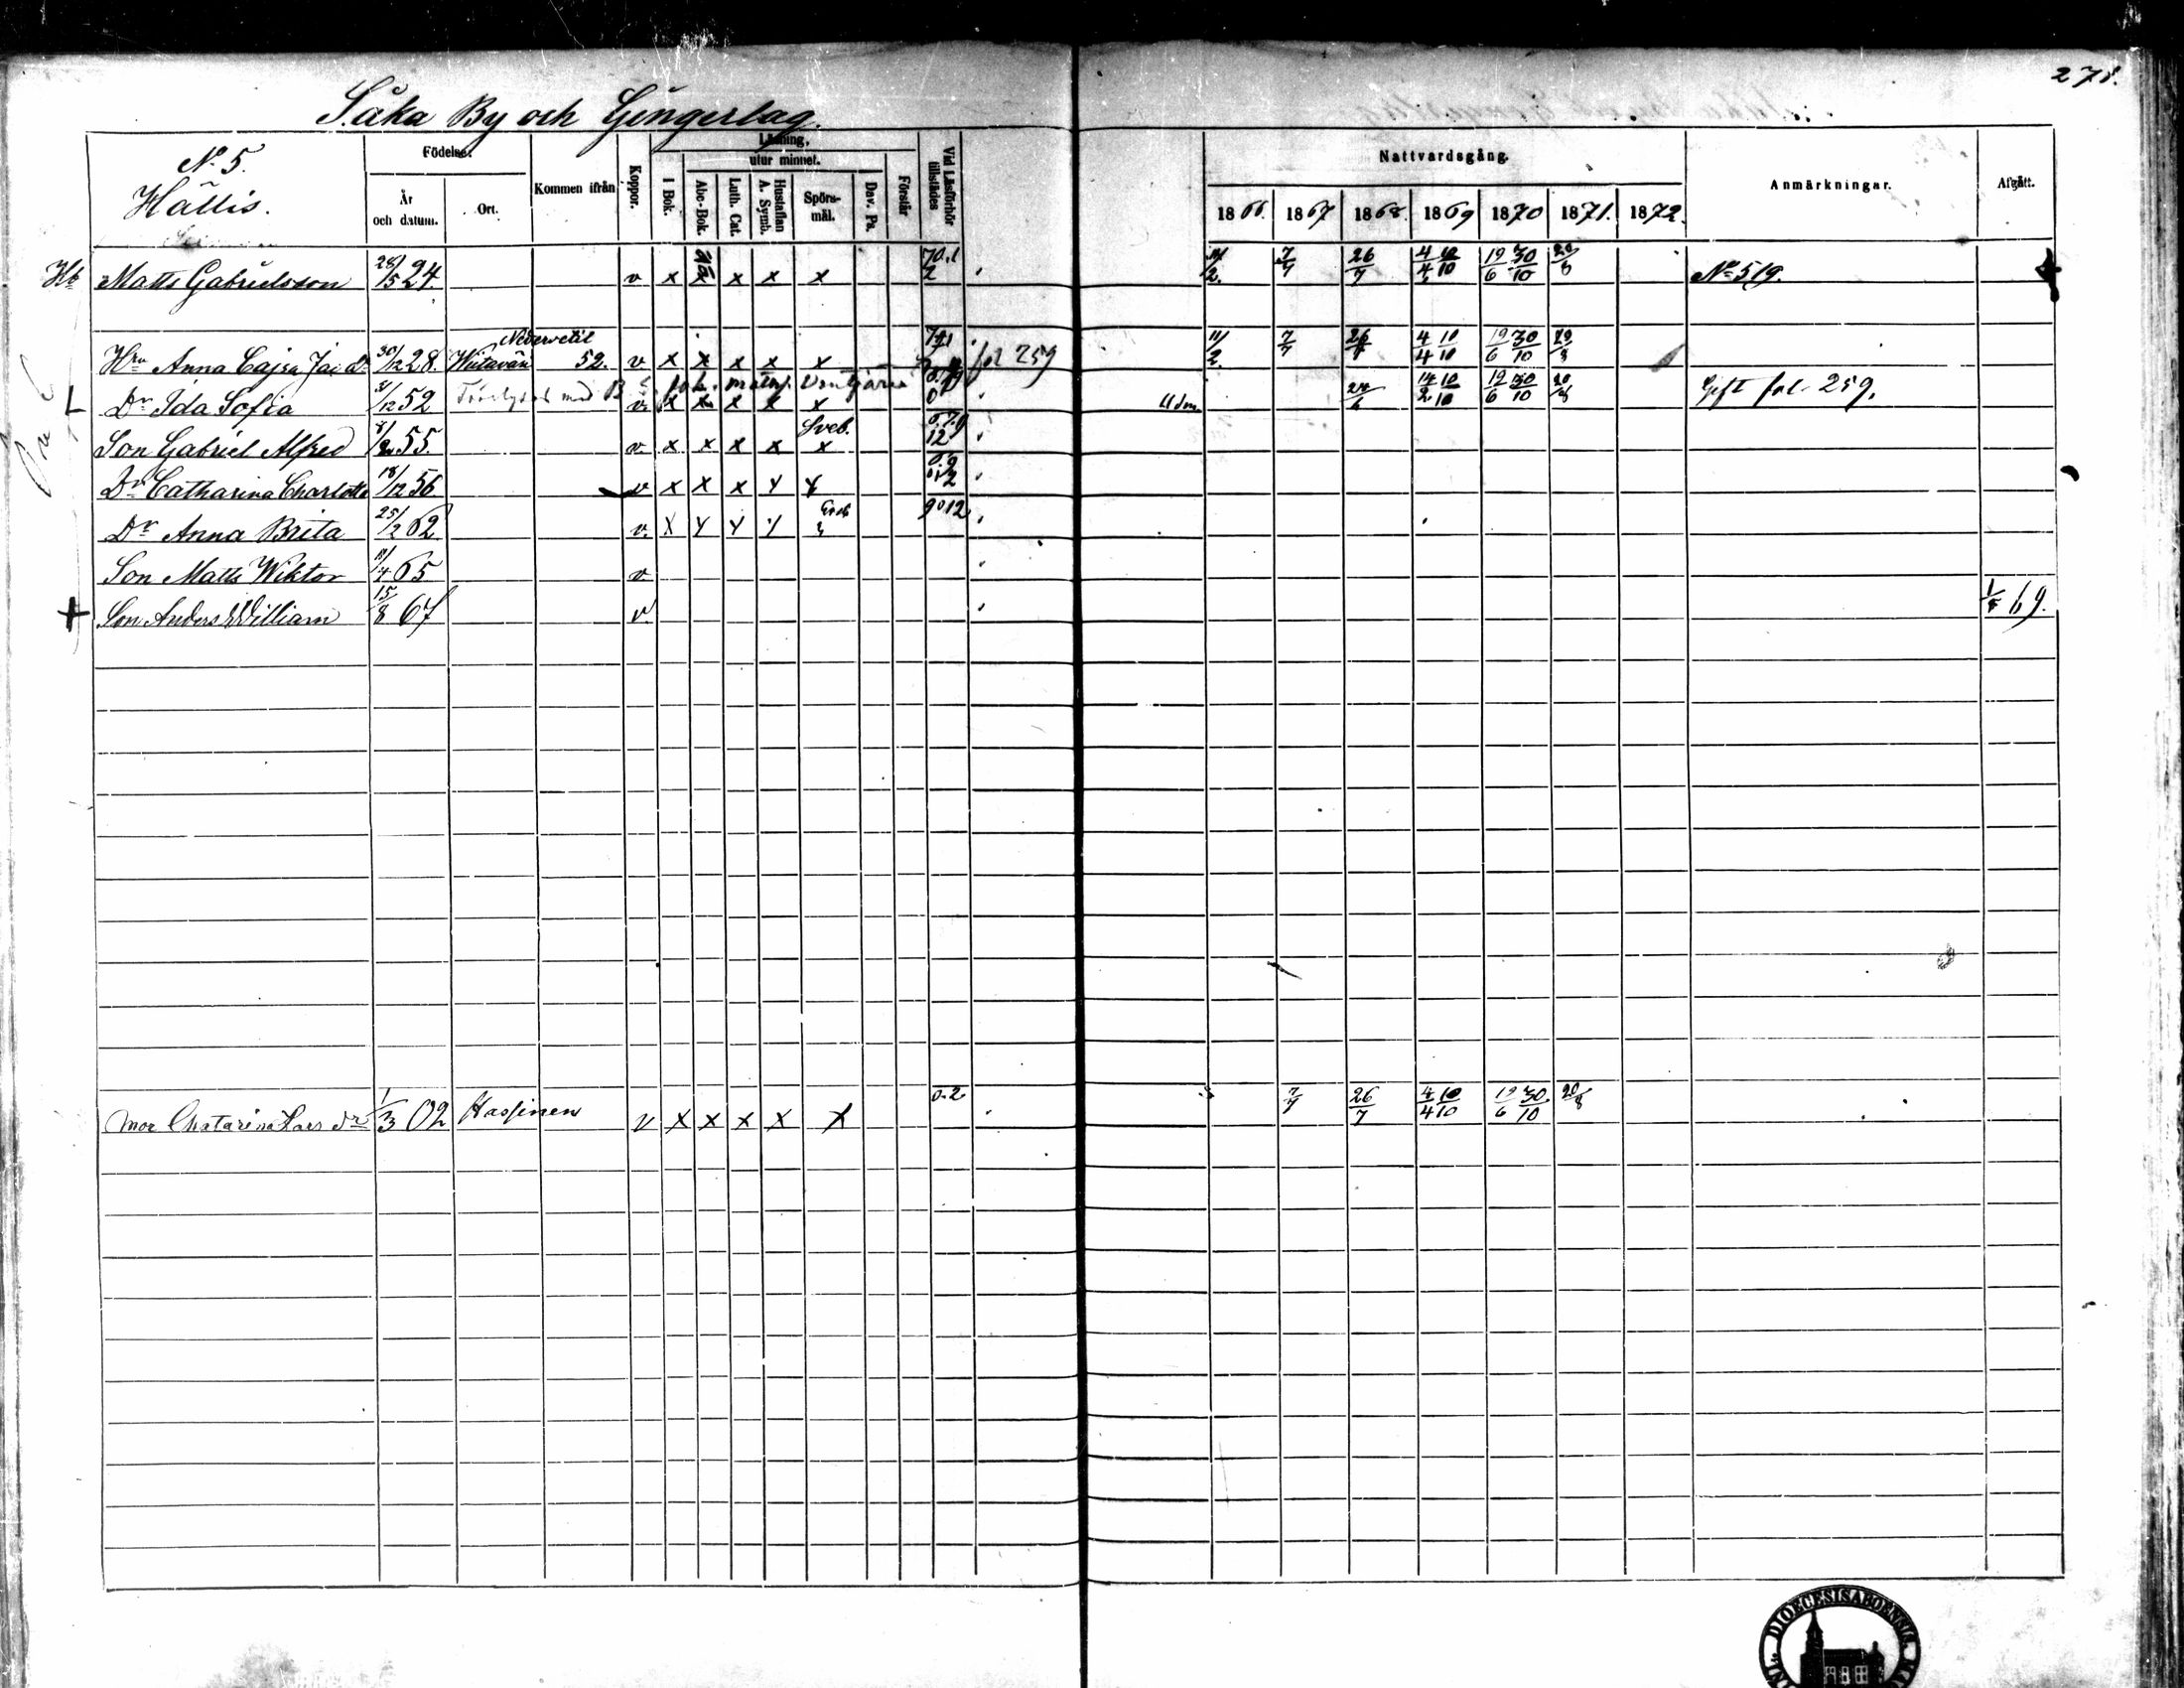 278.
Såka By och Gingerlag.
No 5.
Hällis.
Födelse.
År och datum.
Ort.
Kommen ifrån
Koppor.
Läsning,
utur minnet.
I Bok.
Abc-Bok.
Luth. Cat.
Hustaflan A. Symb.
Spörsmål.
Dav. Ps.
Förstår
Vid Läsförhör tillstädes
Nattvardsgång.
1866. 1867 1868. 1869 1870 1871. 1872.
Anmärkningar.
Afgått.
Hb Matts Gabrielsson 28/5 24 v x x x x x 70.1 2 11/2. 7/7 26/7 4/4 10/10 19/6 30/10 20/8 No 519.
Nedervetil
Hru Anna Cajsa Jac. dr 30/12 28. Wiitavän 52. v x x x x x fol 259 11/2 7/7 26/7 4/4 10/10 19/6 30/10 20/8
Dr Ida Sofia /12 52 v. x x x x x Udm. 24/6 14/2 10/10 19/6 30/10 20/8 Gift fol. 259.
Sveb.
Son Gabriel Alfred 55. v. x x x x x 12
Dr Catharina Charlotta 18/12 56 v x x x x x
Dr Anna Brita 25/2 62 v. x x x x 9012
Son Matts Wiktor /4 65 v
+ Son Anders William 15/8 67 v. 69.
mor Chatarina Lars dr 1/3 02 Hassinen v x x x x x 0.2. 7/7 26/7 4/4 10/10 19/6 30/10 20/8
DIOECESIS ABOENSIS